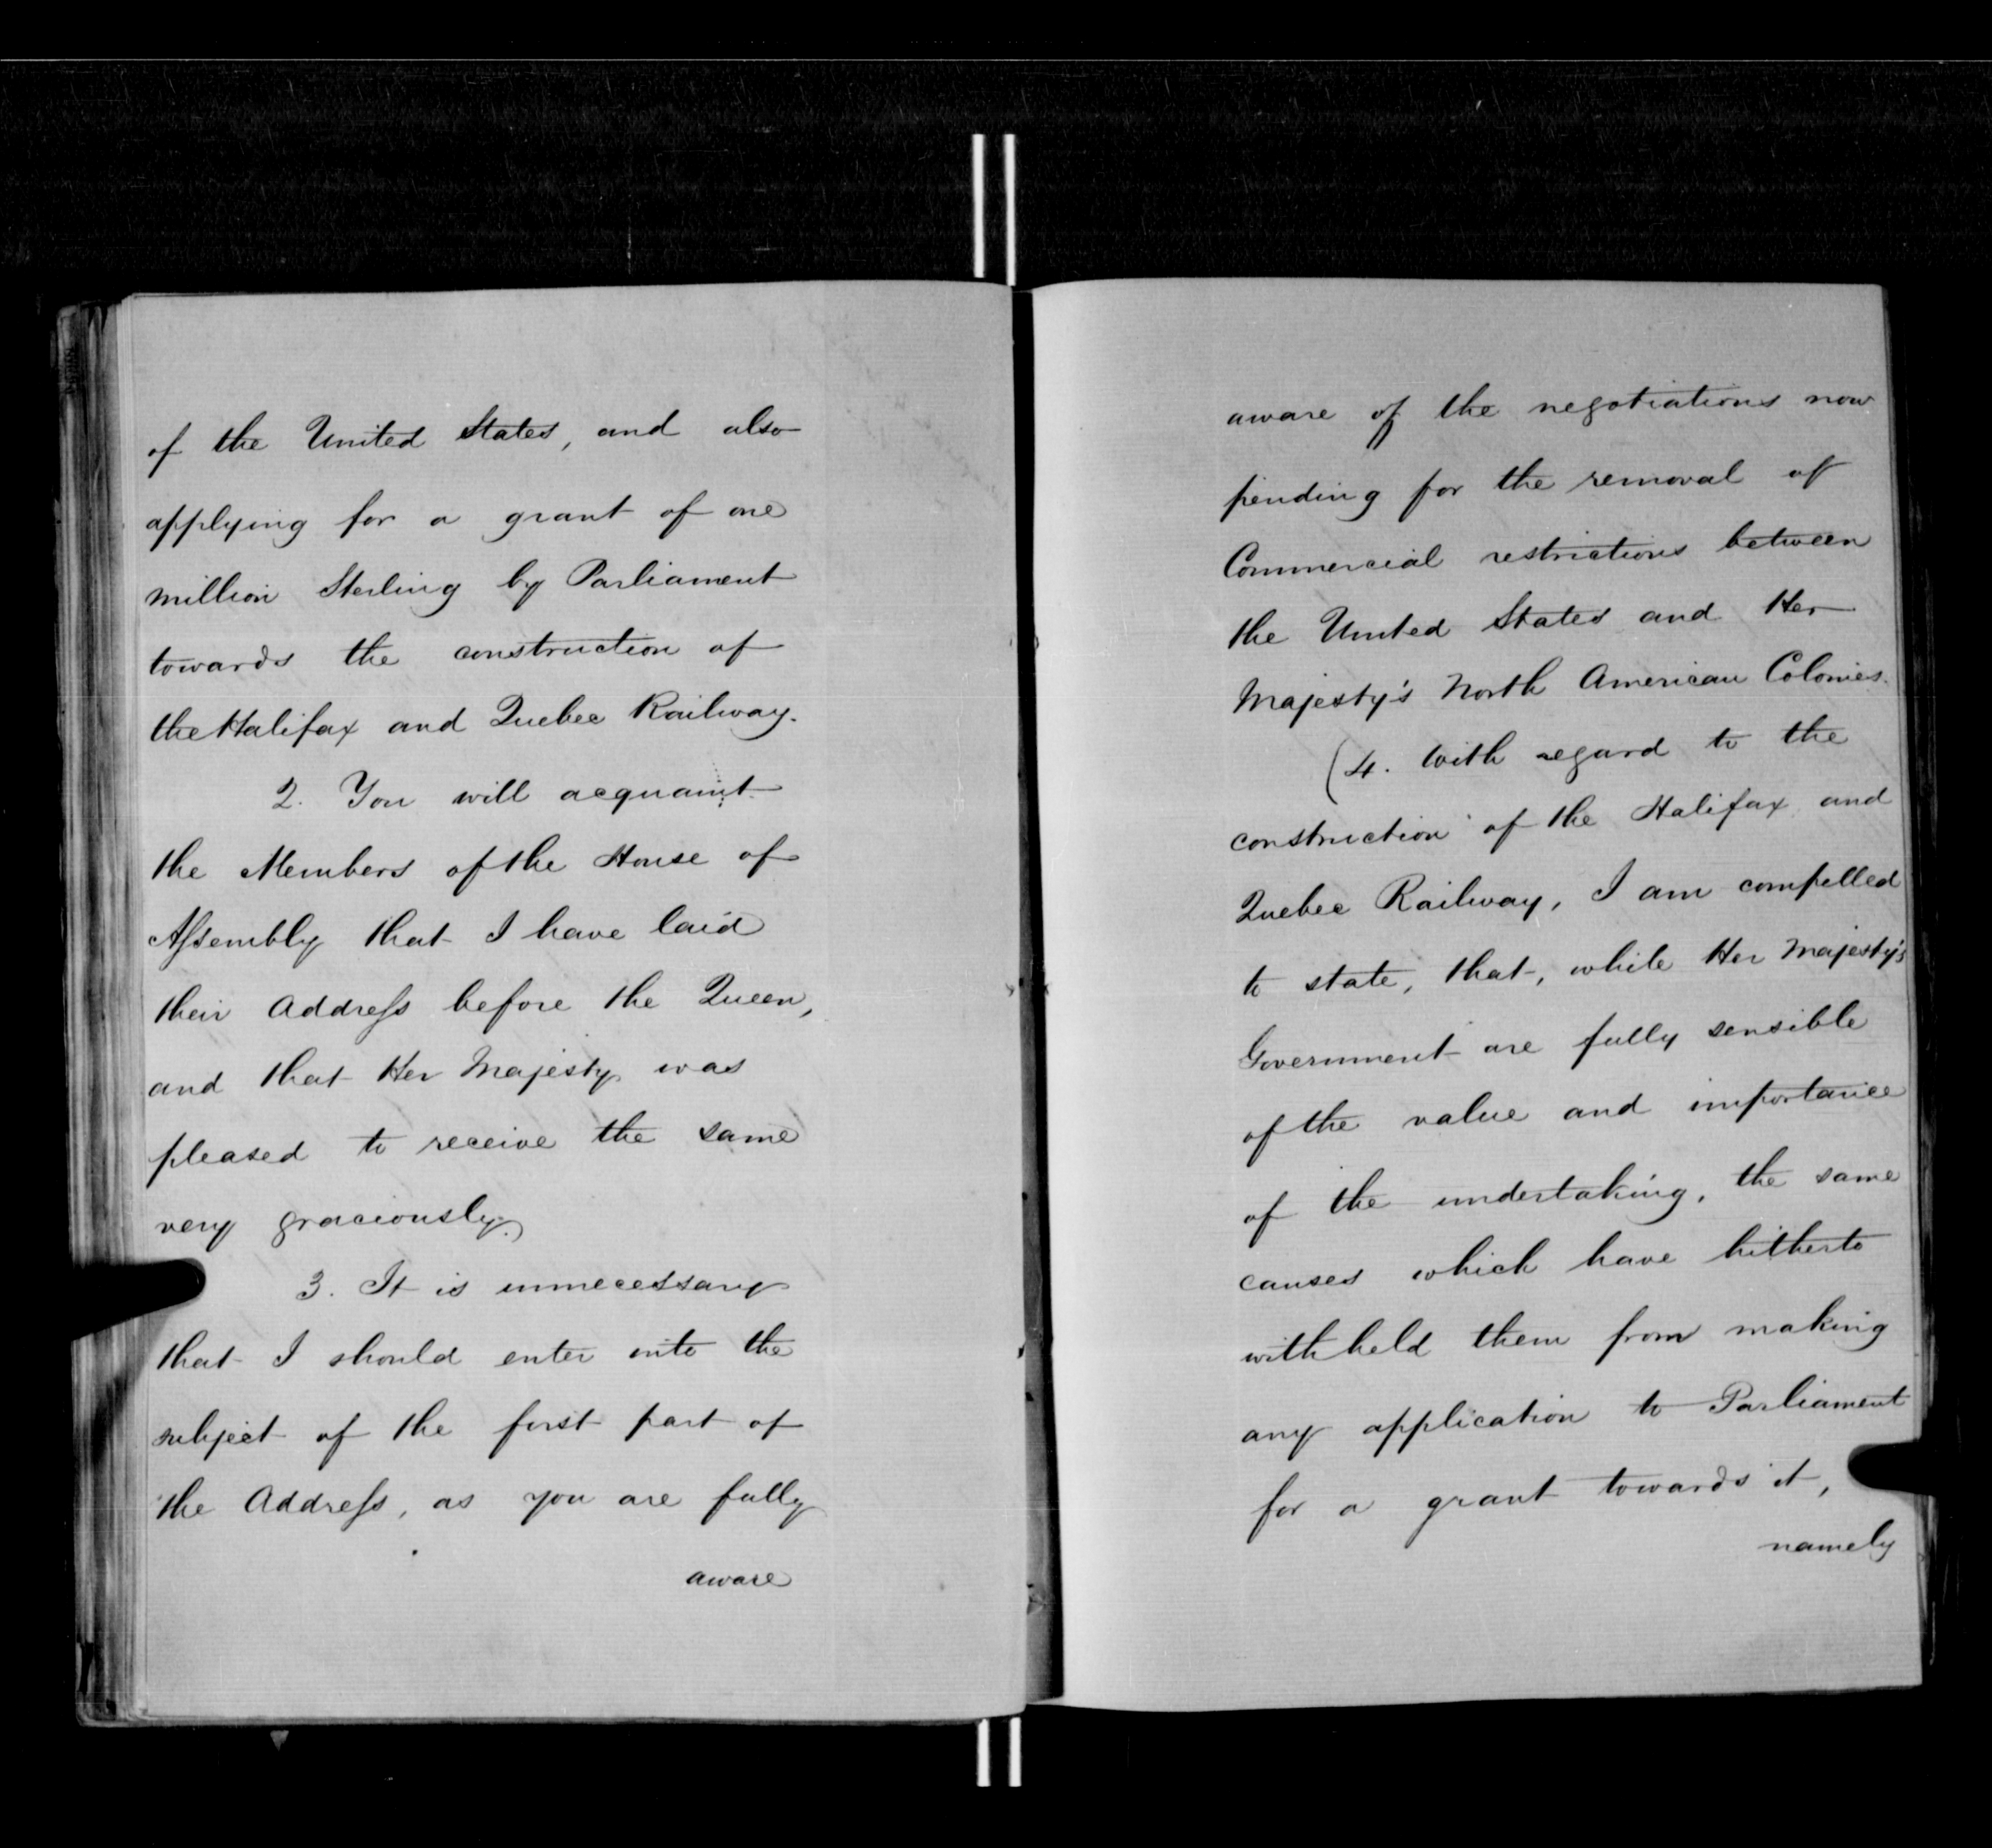 of the United States, and also
applying for a grant of one
million Sterling by Parliament
towards the construction of
the Halifax and Quebec Railway.
2. You will acquaint
the Members of the House of
Assembly that I have laid
their Address before the Queen,
and that Her Majesty was
pleased to receive the same
very graciously.)
3. It is unnecessary
that I should enter into the
subject of the first part of
the Address, as you are fully
aware
aware of the negotiations now
pending for the removal of
Commercial restrictions between
the United States and Her
Majesty's North American Colonies.
(4. With regard to the
construction of the Halifax and
Quebec Railway, I am compelled
to state, that, while Her Majesty's
Government are fully sensible
of the value and importance
of the undertaking, the same
causes which have hitherto
withheld them from making
any application to Parliament
for a grant towards it,
namely